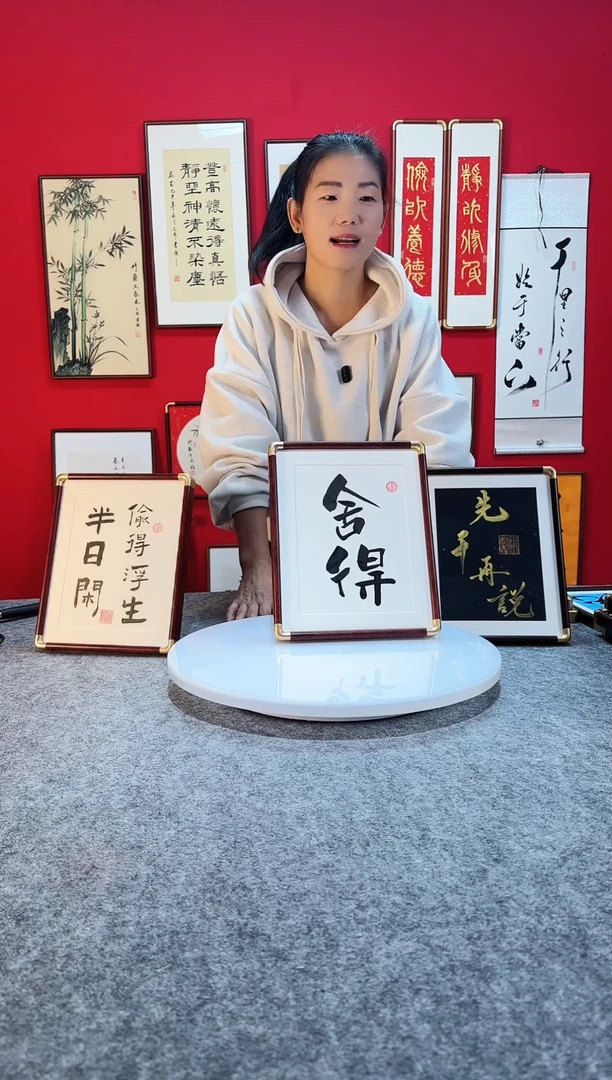 登高懷遠得真悟
靜坐神清不染塵
儉以養德
靜以修身
千里之行
始于當下
偷得浮生
半日閑
舍得
先干再說